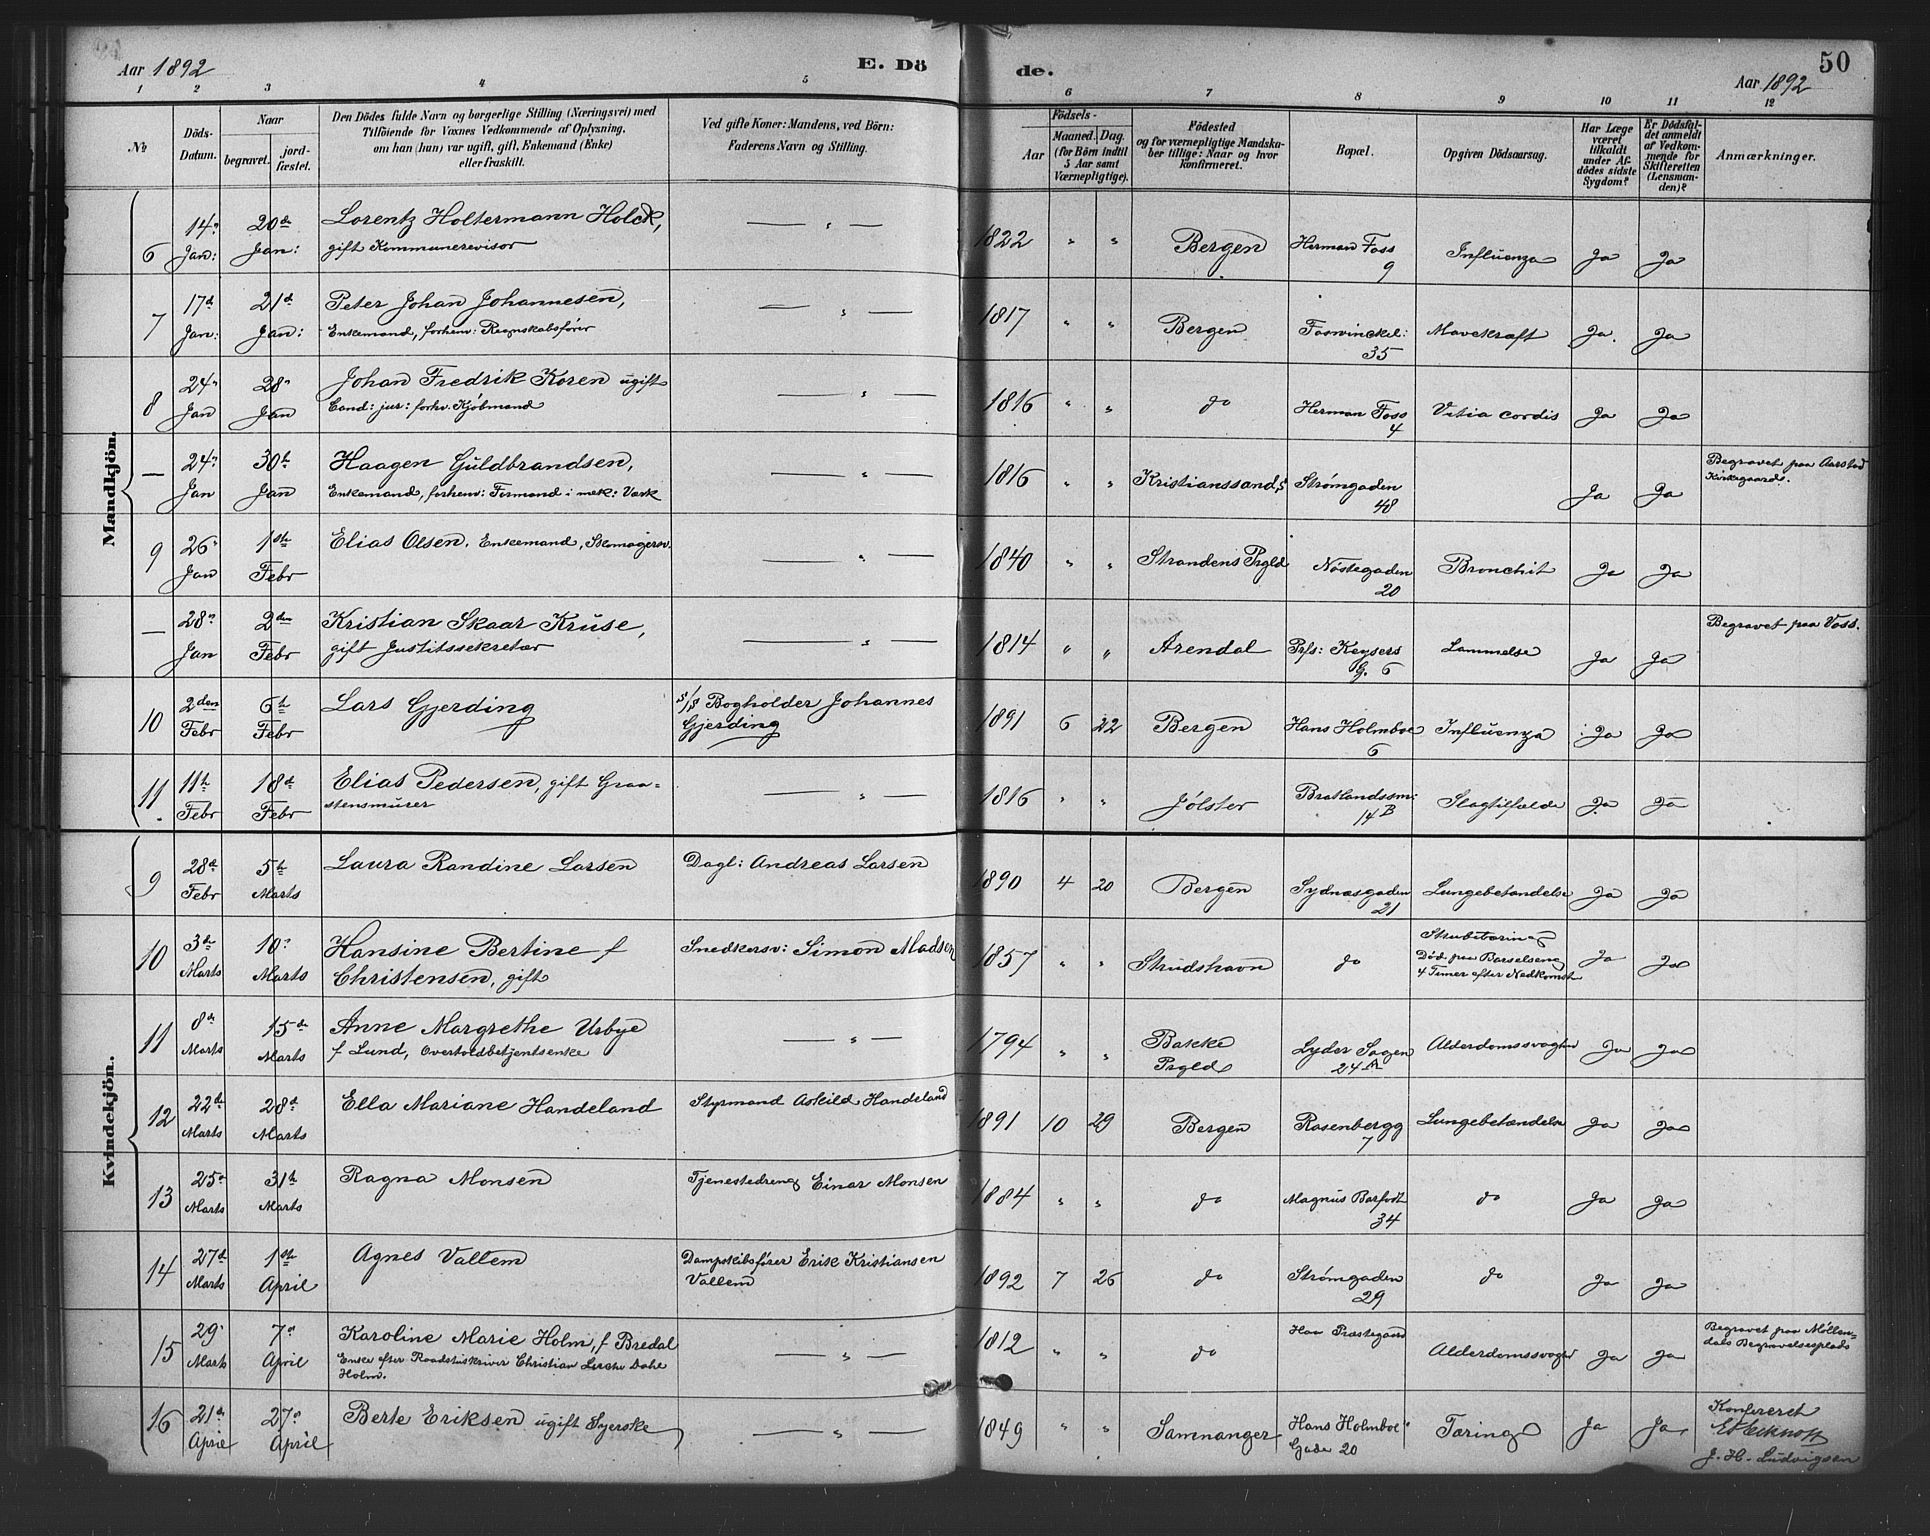 Aar 1892 E. Dö de. Aar 1892 50
1 2 3 4 5 6 7 8 9 10 11 12
No Döds-Datum. Naar begravet. jordfæstet.
Den Dödes fulde Navn og borgerlige Stilling (Næringsvei) med
Tilföiende for Voxnes Vedkommende af Oplysning,
om han (hun) var ugift, gift, Enkemand (Enke)
eller fraskilt.
Ved gifte Koner: Mandens, ved Börn:
Faderens Navn og Stilling.
Födsels-
Aar Maaned. Dag.
(for Börn indtil
5 Aar samt
Værnepligtige).
Födested
og for værnepligtige Mandska-
ber tillige: Naar og hvor
konfirmeret.
Bopæl.
Opgiven Dödsaarsag.
Har Læge
været
tilkaldt
under Af-
dödes sidste
Sygdom?
Er Dödsfal-
det anmeldt
af Vedkom-
mende for
Skifteretten
(Lensman-
den)?
Anmærkninger.
Mandkjön.
6 14" Jan: 20de Jan: Lorentz Holtermann Holck,
gift Kommunerevisor
— " — 1822 " " Bergen Herman Foss 9 Influenza Ja Ja
7 17d Jan: 21d Jan: Peter Johan Johannesen,
Enkemand, forhem: Regnskabsfører
— " — 1817 " " Bergen Fosswinckel: 35 Mavekræft Ja. Ja
8 24" Jan 28" Jan Johan Fredrik Koren ugift
Cand: jur: forhv. Kjøbmand
— " — 1816 " " do Herman Foss 4 Vitia cordis Ja Ja
— 24" Jan 30te Jan Haagen Guldbrandsen,
Enkemand, forhem: Formand i mek: Værk
— " — 1816 " " Kristianssand S Strømgaden 48 Ja Ja Begravet paa Aarstad
Kirkegaard.
9 26" Jan 1ste Febr Elias Olsen, Enkemand, Skomagersv.
— " — 1840 " " Strandens Prgld Nöstegaden 20 Bronchit Ja Ja
— 28" Jan 2den Febr Kristian Skaar Kruse,
gift Justitssekretær
— " — 1814 " " Arendal Prfs: Keysers G. 6 Lammelse Ja Ja Begravet paa Voss.
10 2den Febr 6te Febr Lars Gjerding
Bogholder Johannes
Gjerding
1891 6 22 Bergen Hans Holmboe 6 Influenza Ja Ja
11 11te Febr 18de Febr Elias Pedersen, gift Graa=
stensmurer
— " — 1816 " " Jølster Bratlandssm: 14 B Slagtilfælde Ja Ja
Kvindekjön.
9 28de Febr 5te Marts Laura Randine Larsen
Dagl: Andreas Larsen 1890 4 20 Bergen Sydnæsgaden 21 Lungebetændelse Ja Ja
10 3de Marts 10" Marts Hansine Bertine f
Christensen, gift
Snedkersv: Simon Madsen 1857 " " Strudshavn do
Død paa Barselseng
4 Timer efter Nedkomst Ja Ja
11 8de Marts 15de Marts Anne Margrethe Urbye
f Lund, Overtoldbetjentsenke
— " — 1794 " " Bakke Prgld Lyder Sagen 24 A Alderdomssvaghed Ja Ja
12 22de Marts 28de Marts Ella Mariane Handeland
Styrmand Askild Handeland 1891 10 29 Bergen Rosenbergg 7 Lungebetændelse Ja Ja
13 25" Marts 31te Marts Ragna Monsen
Tjenestedreng Einar Monsen 1884 " " do Magnus Barfodt 34 do Ja Ja
14 27de Marts 1ste April Agnes Vallem
Dampskibsfører Erik Kristiansen
Vallem
1892 7 26 do Strømgaden 29 do Ja Ja
15 29" Marts 7" April Karoline Marie Holm, f Bredal
Enke efter Raadstuskriver Christian Lerche Dahl
Holm.
— " — 1812 " " do Præstegaard Alderdomssvaghed Ja Ja
Begravet paa Møllen=
dals Begravelsesplads
16 21de April 27" April Berte Eriksen ugift Syerske
— " — 1849 " " Samnanger Hans Holmboe
Gade 20 Tæring Ja Ja
Konfereret
J. H. Ludvigsen